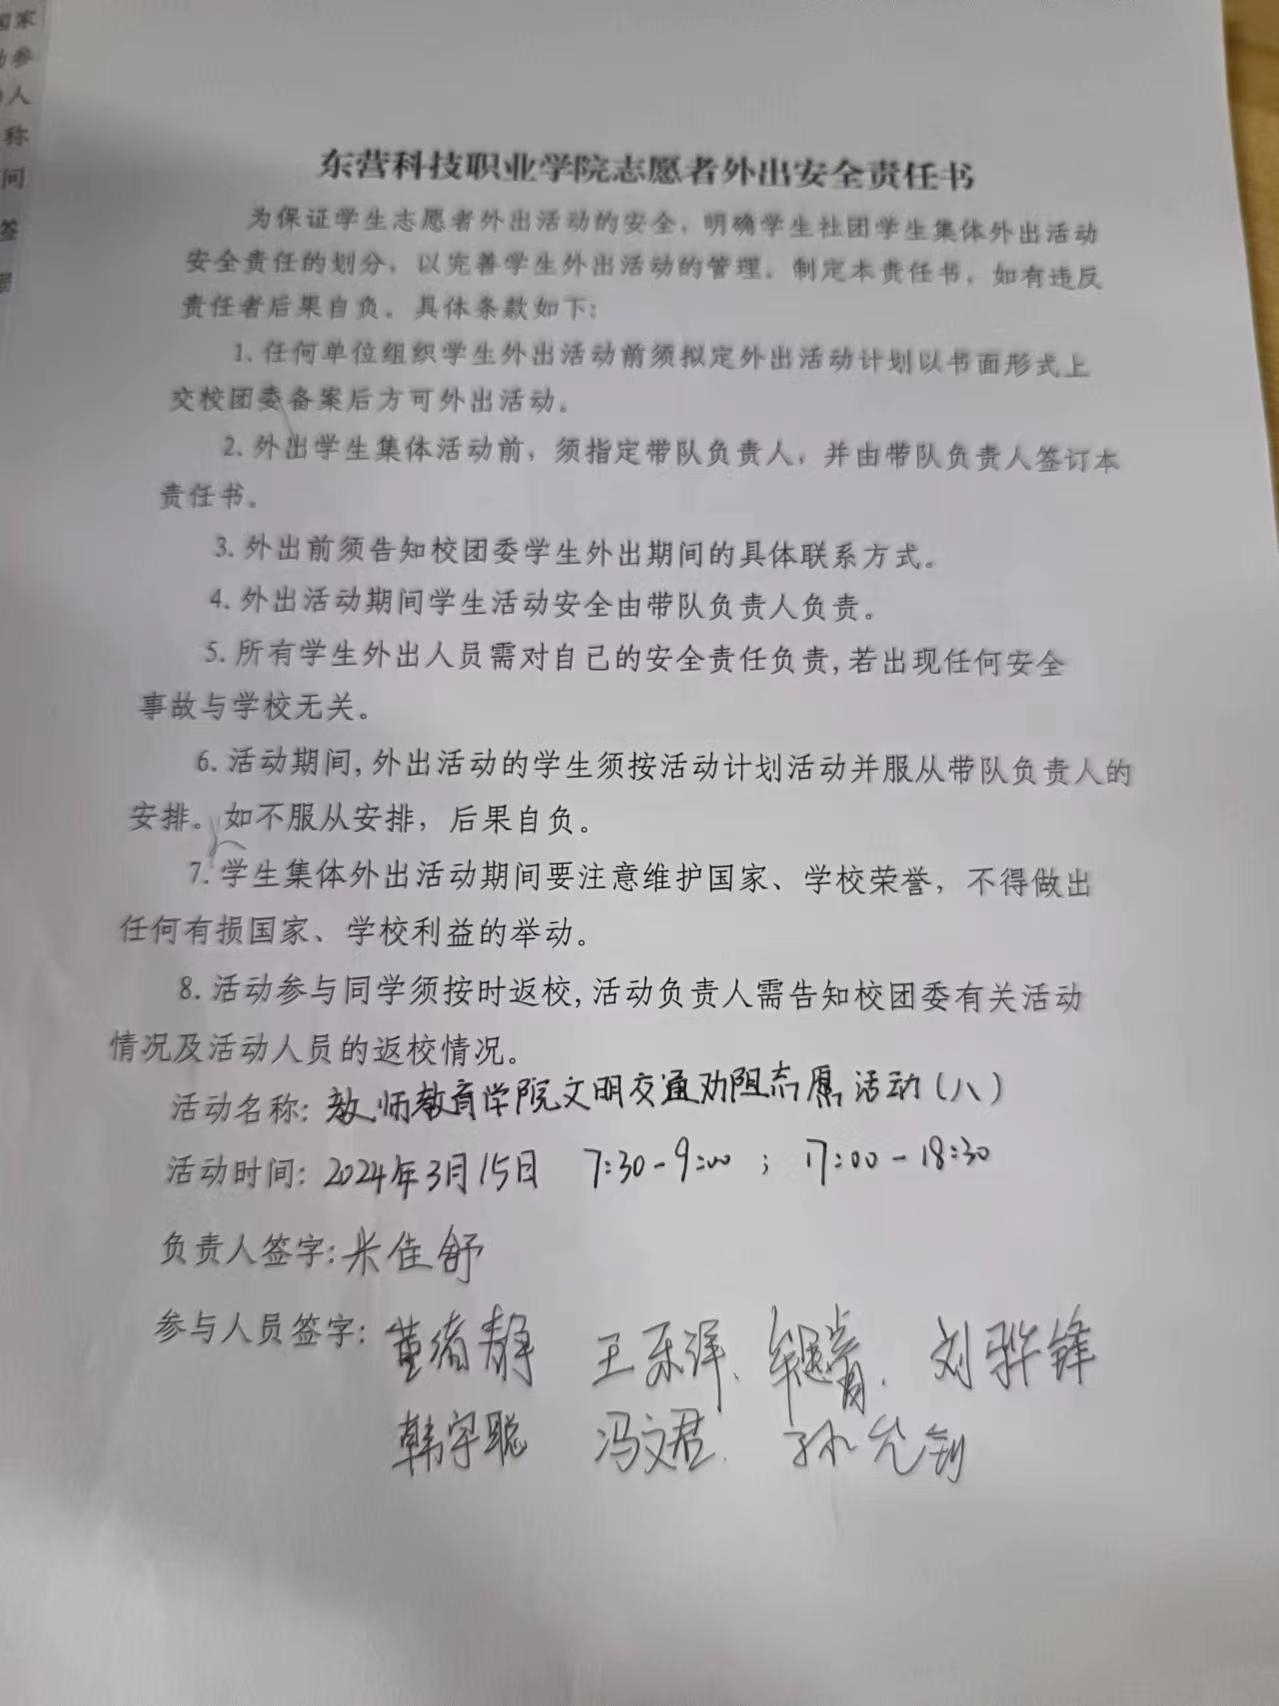 国家
动参
人
称
问
签
东营科技职业学院志愿者外出安全责任书
为保证学生志愿者外出活动的安全，明确学生社团学生集体外出活动
安全责任的划分，以完善学生外出活动的管理。制定本责任书，如有违反
责任者后果自负。具体条款如下：
1. 任何单位组织学生外出活动前须拟定外出活动计划以书面形式上
交校团委备案后方可外出活动。
2. 外出学生集体活动前，须指定带队负责人，并由带队负责人签订本
责任书。
3. 外出前须告知校团委学生外出期间的具体联系方式。
4. 外出活动期间学生活动安全由带队负责人负责。
5. 所有学生外出人员需对自己的安全责任负责,若出现任何安全
事故与学校无关。
6. 活动期间,外出活动的学生须按活动计划活动并服从带队负责人的
安排。如不服从安排，后果自负。
7. 学生集体外出活动期间要注意维护国家、学校荣誉，不得做出
任何有损国家、学校利益的举动。
8. 活动参与同学须按时返校,活动负责人需告知校团委有关活动
情况及活动人员的返校情况。
活动名称: 教师教育学院文明交通劝阻志愿活动(八)
活动时间: 2024年3月15日 7:30-9:00 ; 17:00-18:30
负责人签字: 米佳舒
参与人员签字: 董绪静 王乐洋. 刘骅锋
韩宇聪 冯文君. 孙允钊